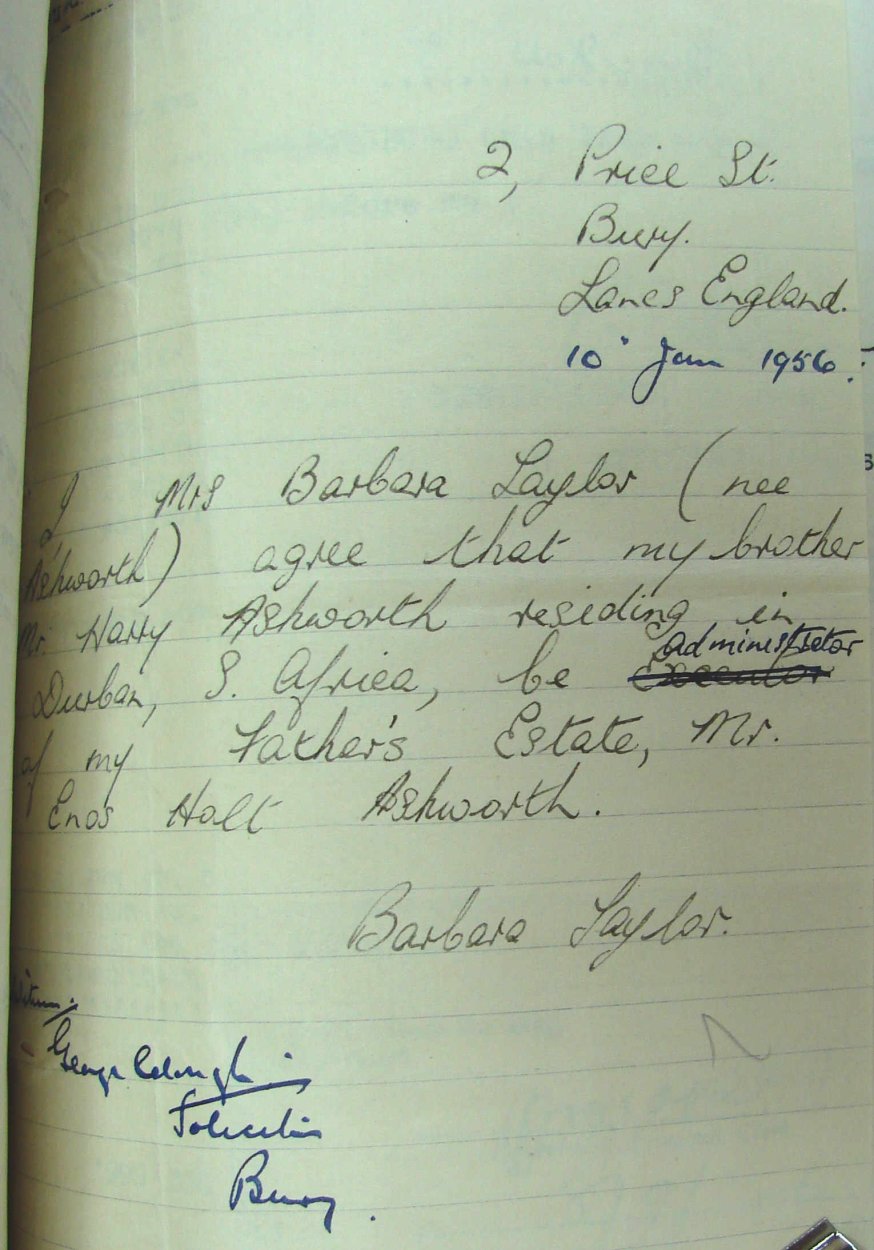 2, Price St.
Bury.
Lancs England.
10" Jan 1956.
I, Mrs Barbara Taylor (nee
Ashworth) agree that my brother
Mr. Harry Ashworth residing in
administrator
Durban, S. Africa, be Executor
of my Father's Estate, Mr.
Enos Holt Ashworth.
Barbara Taylor.
George
Solicitor
Bury.